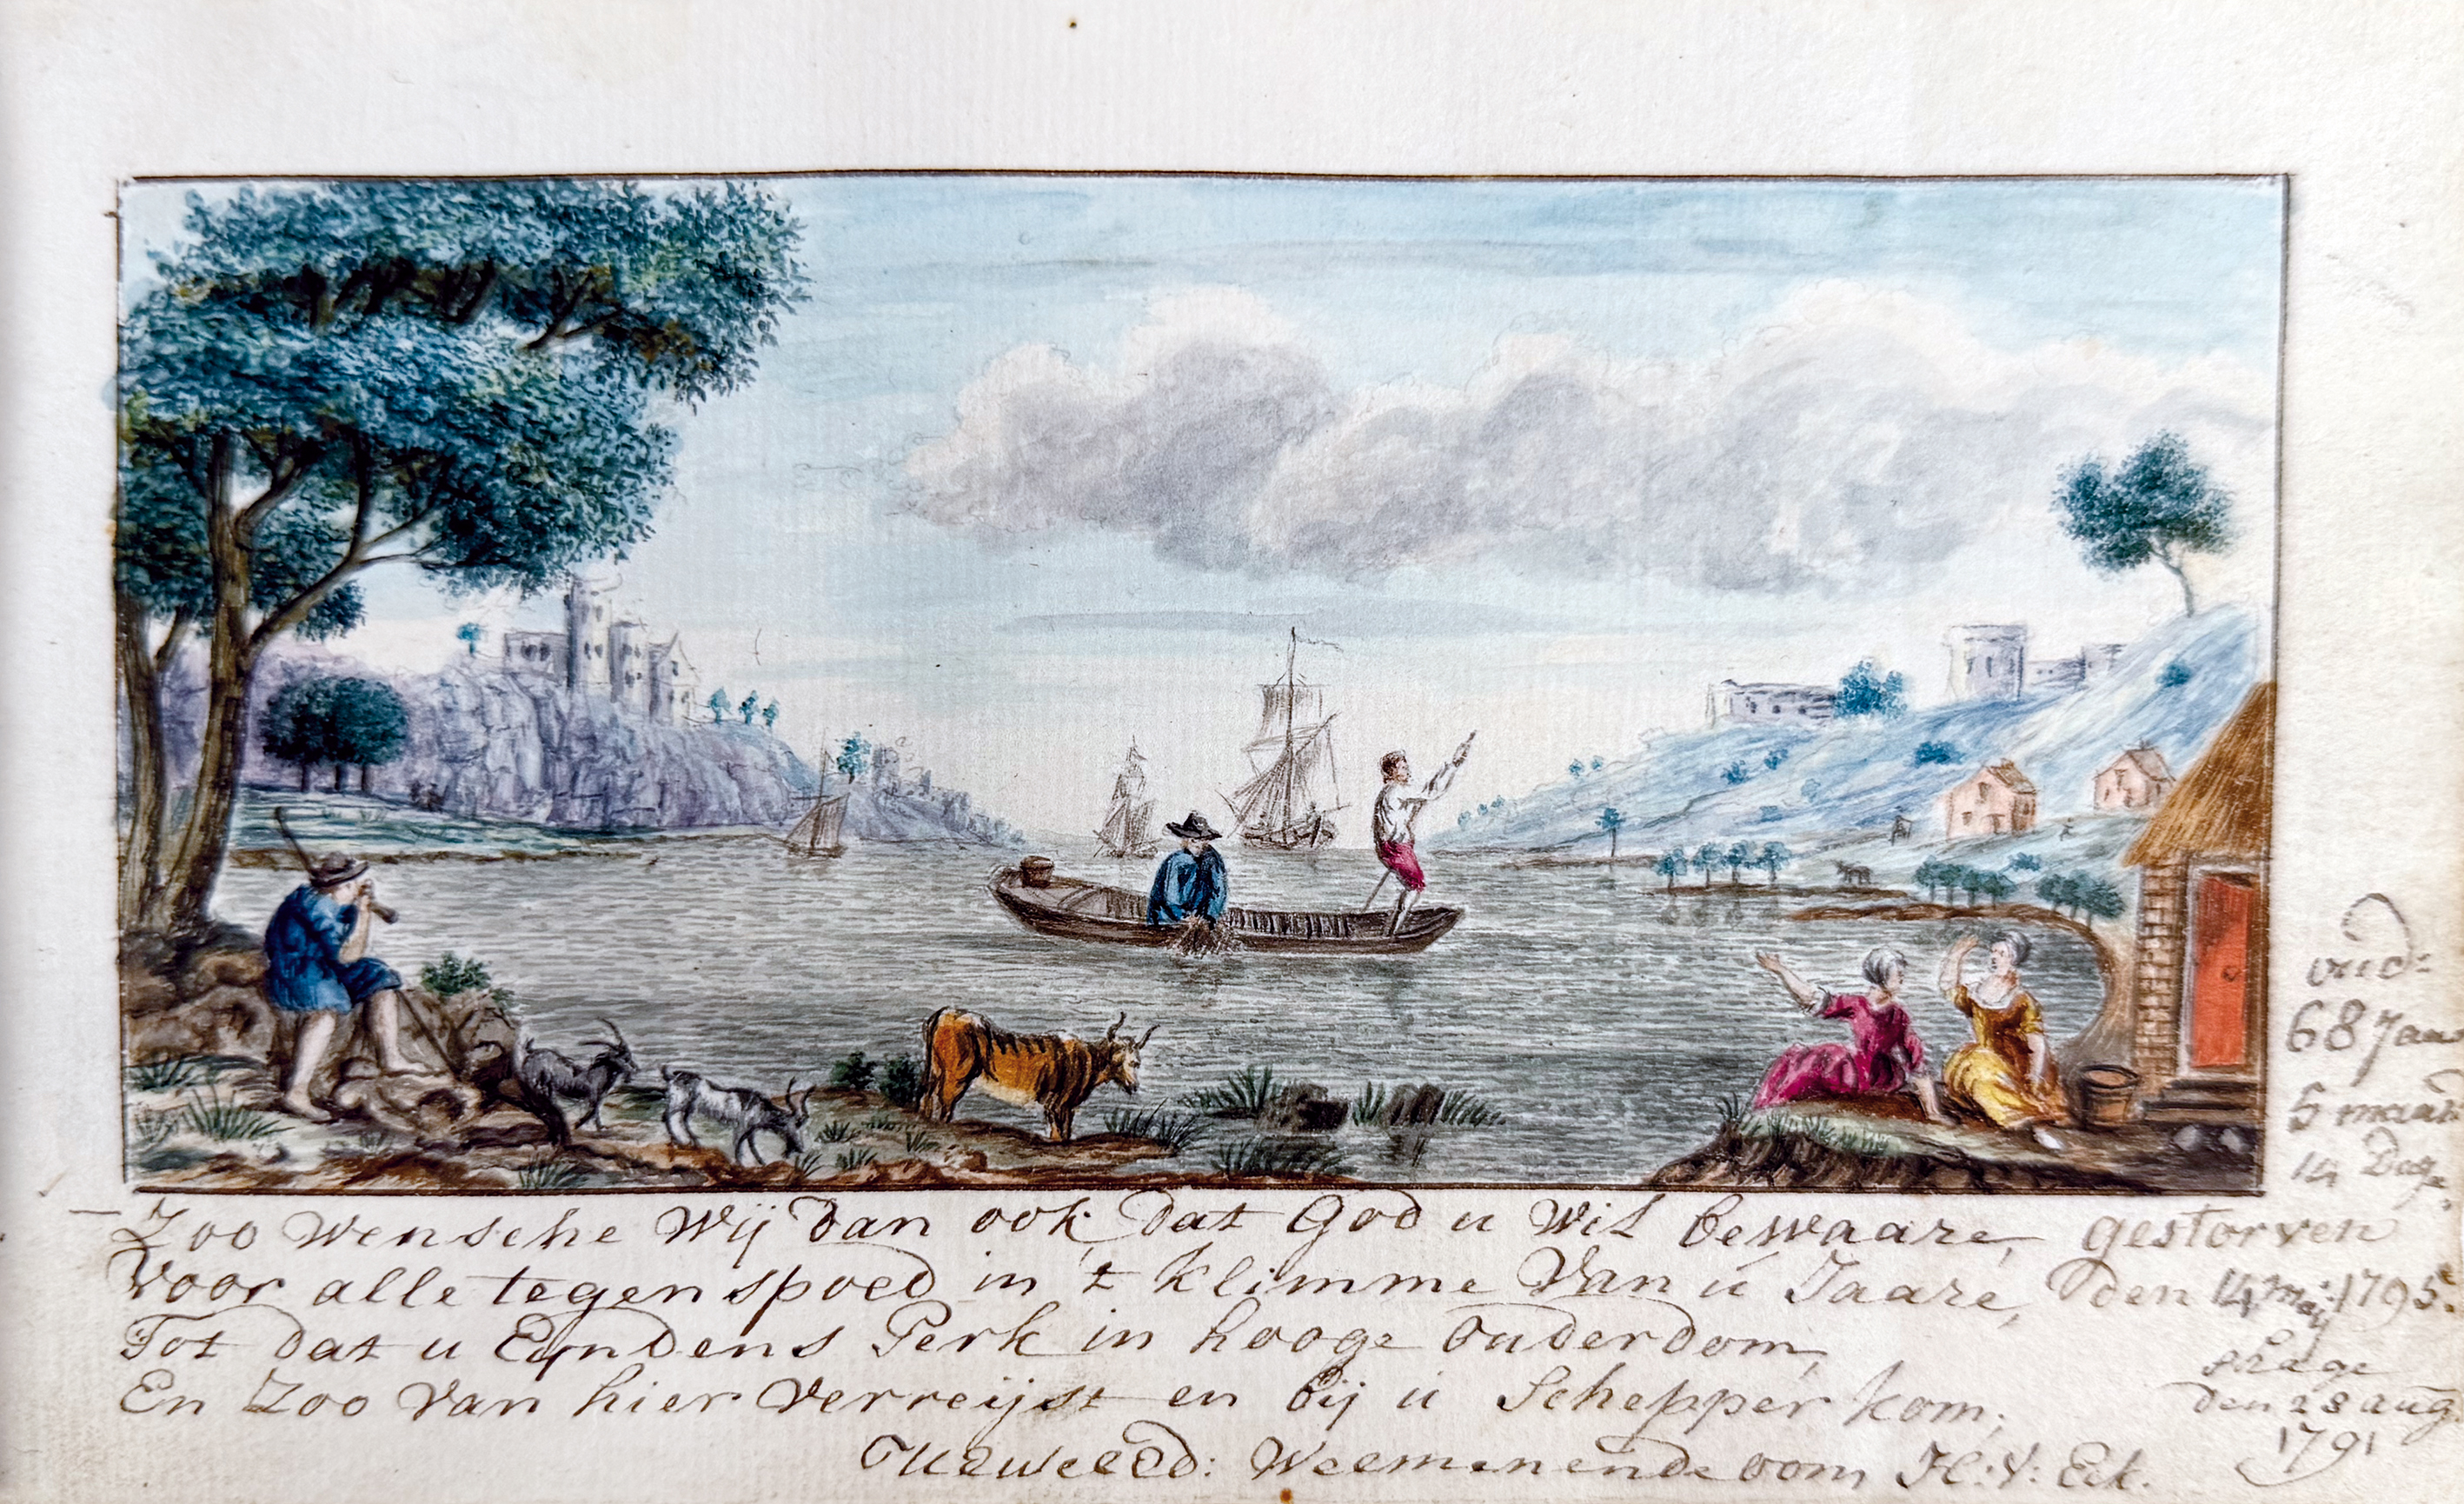 Zoo Wensche Wij dan ook, dat God u Wil bewaare,
Voor alle tegenspoed in 't klimme Van ú Jaare,
Tot dat u Eyndens Perk in hooge Ouderdom,
En Zoo Van hier Verreijst en bij ú Schepper kom,
Weemenende oom, H: V: Eck.
oud:
68 Jaar
5 maand
14 Dage,
gestorven
den 14 Meij 1795.
sHage
den 28 aug
1791